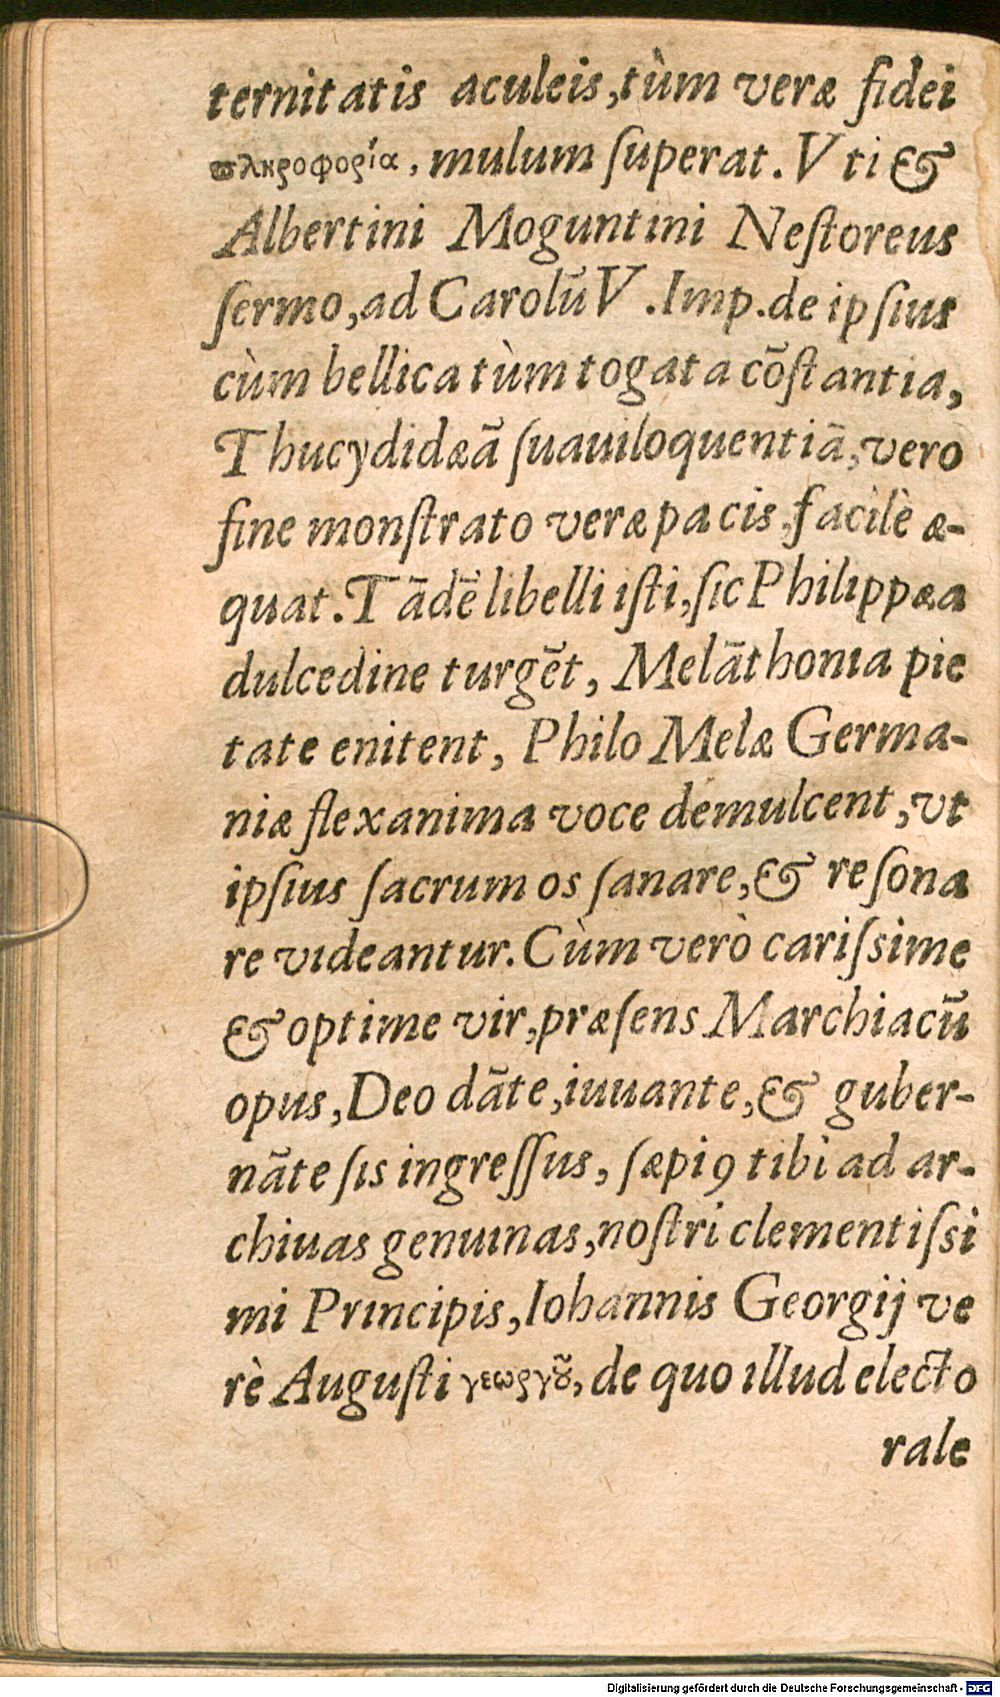 ternitatis aculeis, tùm veræ fidei
πληροφορία, mulum ſuperat. Vti &
Albertini Moguntini Neſtoreus
ſermo, ad Carolũ V. Imp. de ipſius
cùm bellica tùm togata cõſtantia,
Thucydidæã ſuauiloquentiã, vero
fine monſtrato veræ pacis, facilè æ-
quat. Tãdẽ libelli iſti, ſic Philippæa
dulcedine turgẽt, Melãthonia pie
tate enitent, Philo Melæ Germa-
niæ flexanima voce demulcent, vt
ipſius ſacrum os ſanare, & reſona
re videantur. Cùm verò cariſsime
& optime vir, præſens Marchiacũ
opus, Deo dãte, iuuante, & guber-
nãte ſis ingreſſus, ſæpiꝰ tibi ad ar-
chiuas genuinas, noſtri clementiſsi
mi Principis, Iohannis Georgij ve
rè Auguſti γεωργȣ͂, de quo illud electo
rale
Digitalisierung gefördert durch die Deutsche Forschungsgemeinschaft - DFG